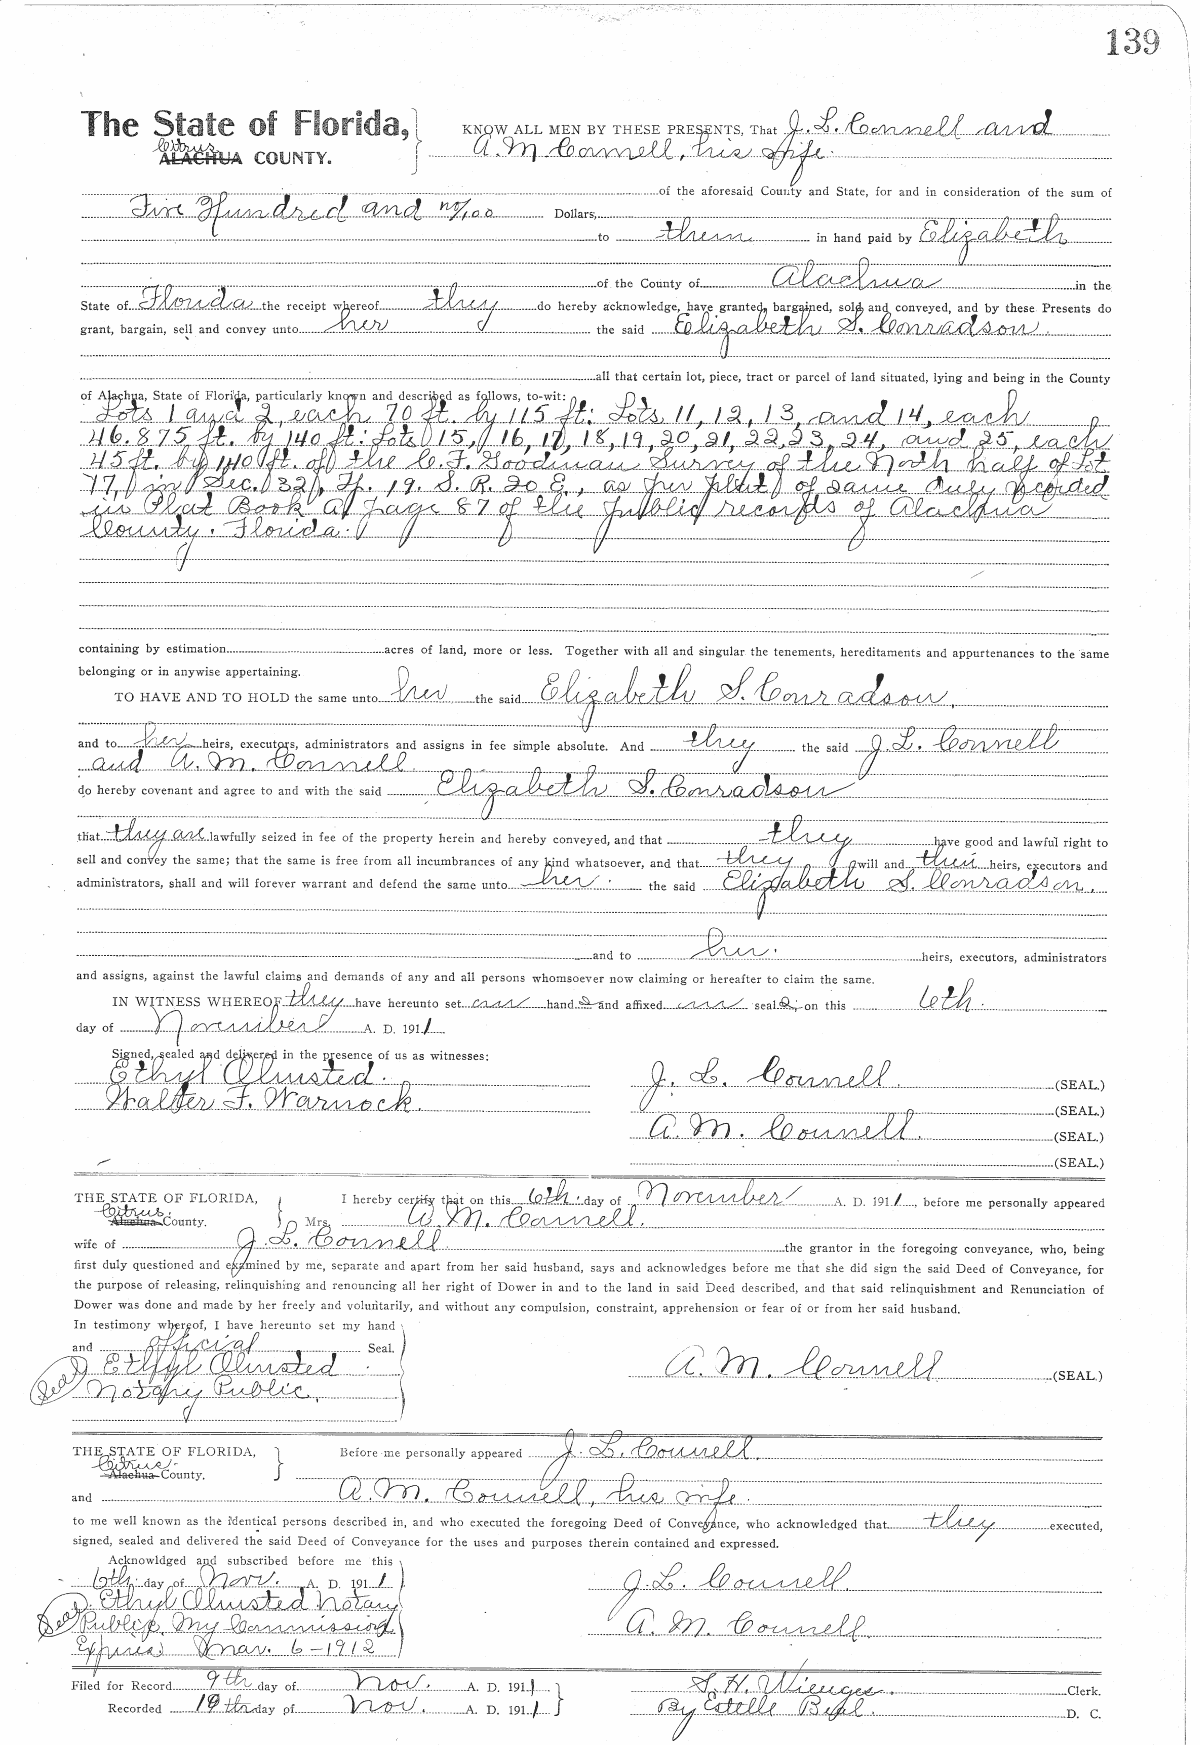 139
The State of Florida,
Citrus
ALACHUA COUNTY.
KNOW ALL MEN BY THESE PRESENTS, That J. L. Connell and
A. M. Connell, his wife.
of the aforesaid County and State, for and in consideration of the sum of
Five Hundred and no/100 Dollars,
to them in hand paid by Elizabeth
of the County of Alachua in the
State of Florida the receipt whereof they do hereby acknowledge, have granted, bargained, sold and conveyed, and by these Presents do
grant, bargain, sell and convey unto her the said Elizabeth S. Conradson.
all that certain lot, piece, tract or parcel of land situated, lying and being in the County
of Alachua, State of Florida, particularly known and described as follows, to-wit:
Lots 1 and 2, each 70 ft. by 115 ft: Lots 11, 12, 13, and 14, each
46.875 ft. by 140 ft: Lots 15, 16, 17, 18, 19, 20, 21, 22, 23, 24, and 25, each
45 ft. by 140 ft. of the C. F. Goodman Survey of the North half of Lot
17, in Sec. 32, Tp. 19. S. R. 20 E., as per plat of same duly recorded
in Plat Book A, page 87 of the public records of Alachua
County. Florida.
containing by estimation acres of land, more or less. Together with all and singular the tenements, hereditaments and appurtenances to the same
belonging or in anywise appertaining.
TO HAVE AND TO HOLD the same unto her the said Elizabeth S. Conradson,
and to her heirs, executors, administrators and assigns in fee simple absolute. And they the said J. L. Connell
and A. M. Connell
do hereby covenant and agree to and with the said Elizabeth S. Conradson
that they are lawfully seized in fee of the property herein and hereby conveyed, and that they have good and lawful right to
sell and convey the same; that the same is free from all incumbrances of any kind whatsoever, and that they will and their heirs, executors and
administrators, shall and will forever warrant and defend the same unto her. the said Elizabeth S. Conradson.
and to her. heirs, executors, administrators
and assigns, against the lawful claims and demands of any and all persons whomsoever now claiming or hereafter to claim the same.
IN WITNESS WHEREOF they have hereunto set our hand s and affixed our seal s, on this 6th.
day of November A. D. 1911
Signed, sealed and delivered in the presence of us as witnesses:
Ethyl Olmsted.
Walter F. Warnock.
J. L. Connell (SEAL.)
(SEAL.)
A. M. Connell. (SEAL.)
(SEAL.)
THE STATE OF FLORIDA,
Citrus.
Alachua County.
I hereby certify that on this 6th. day of November A. D. 1911, before me personally appeared
Mrs. A. M. Connell.
wife of J. L. Connell the grantor in the foregoing conveyance, who, being
first duly questioned and examined by me, separate and apart from her said husband, says and acknowledges before me that she did sign the said Deed of Conveyance, for
the purpose of releasing, relinquishing and renouncing all her right of Dower in and to the land in said Deed described, and that said relinquishment and Renunciation of
Dower was done and made by her freely and voluntarily, and without any compulsion, constraint, apprehension or fear of or from her said husband.
In testimony whereof, I have hereunto set my hand
and official Seal.
Seal Ethyl Olmsted
Notary Public.
A. M. Connell (SEAL)
THE STATE OF FLORIDA,
Citrus.
Alachua County.
Before me personally appeared J. L. Connell.
and A. M. Connell, his wife.
to me well known as the identical persons described in, and who executed the foregoing Deed of Conveyance, who acknowledged that they executed,
signed, sealed and delivered the said Deed of Conveyance for the uses and purposes therein contained and expressed.
Acknowldged and subscribed before me this
6th. day of Nov. A. D. 1911
Seal Ethyl Olmsted Notary
Public. My Commission
Expires Mar. 6-1912
J. L. Connell.
A. M. Connell.
Filed for Record 9th day of Nov. A. D. 1911
Recorded 19th day of Nov. A. D. 1911
S. H. Wienges. Clerk.
By Estelle D. C.